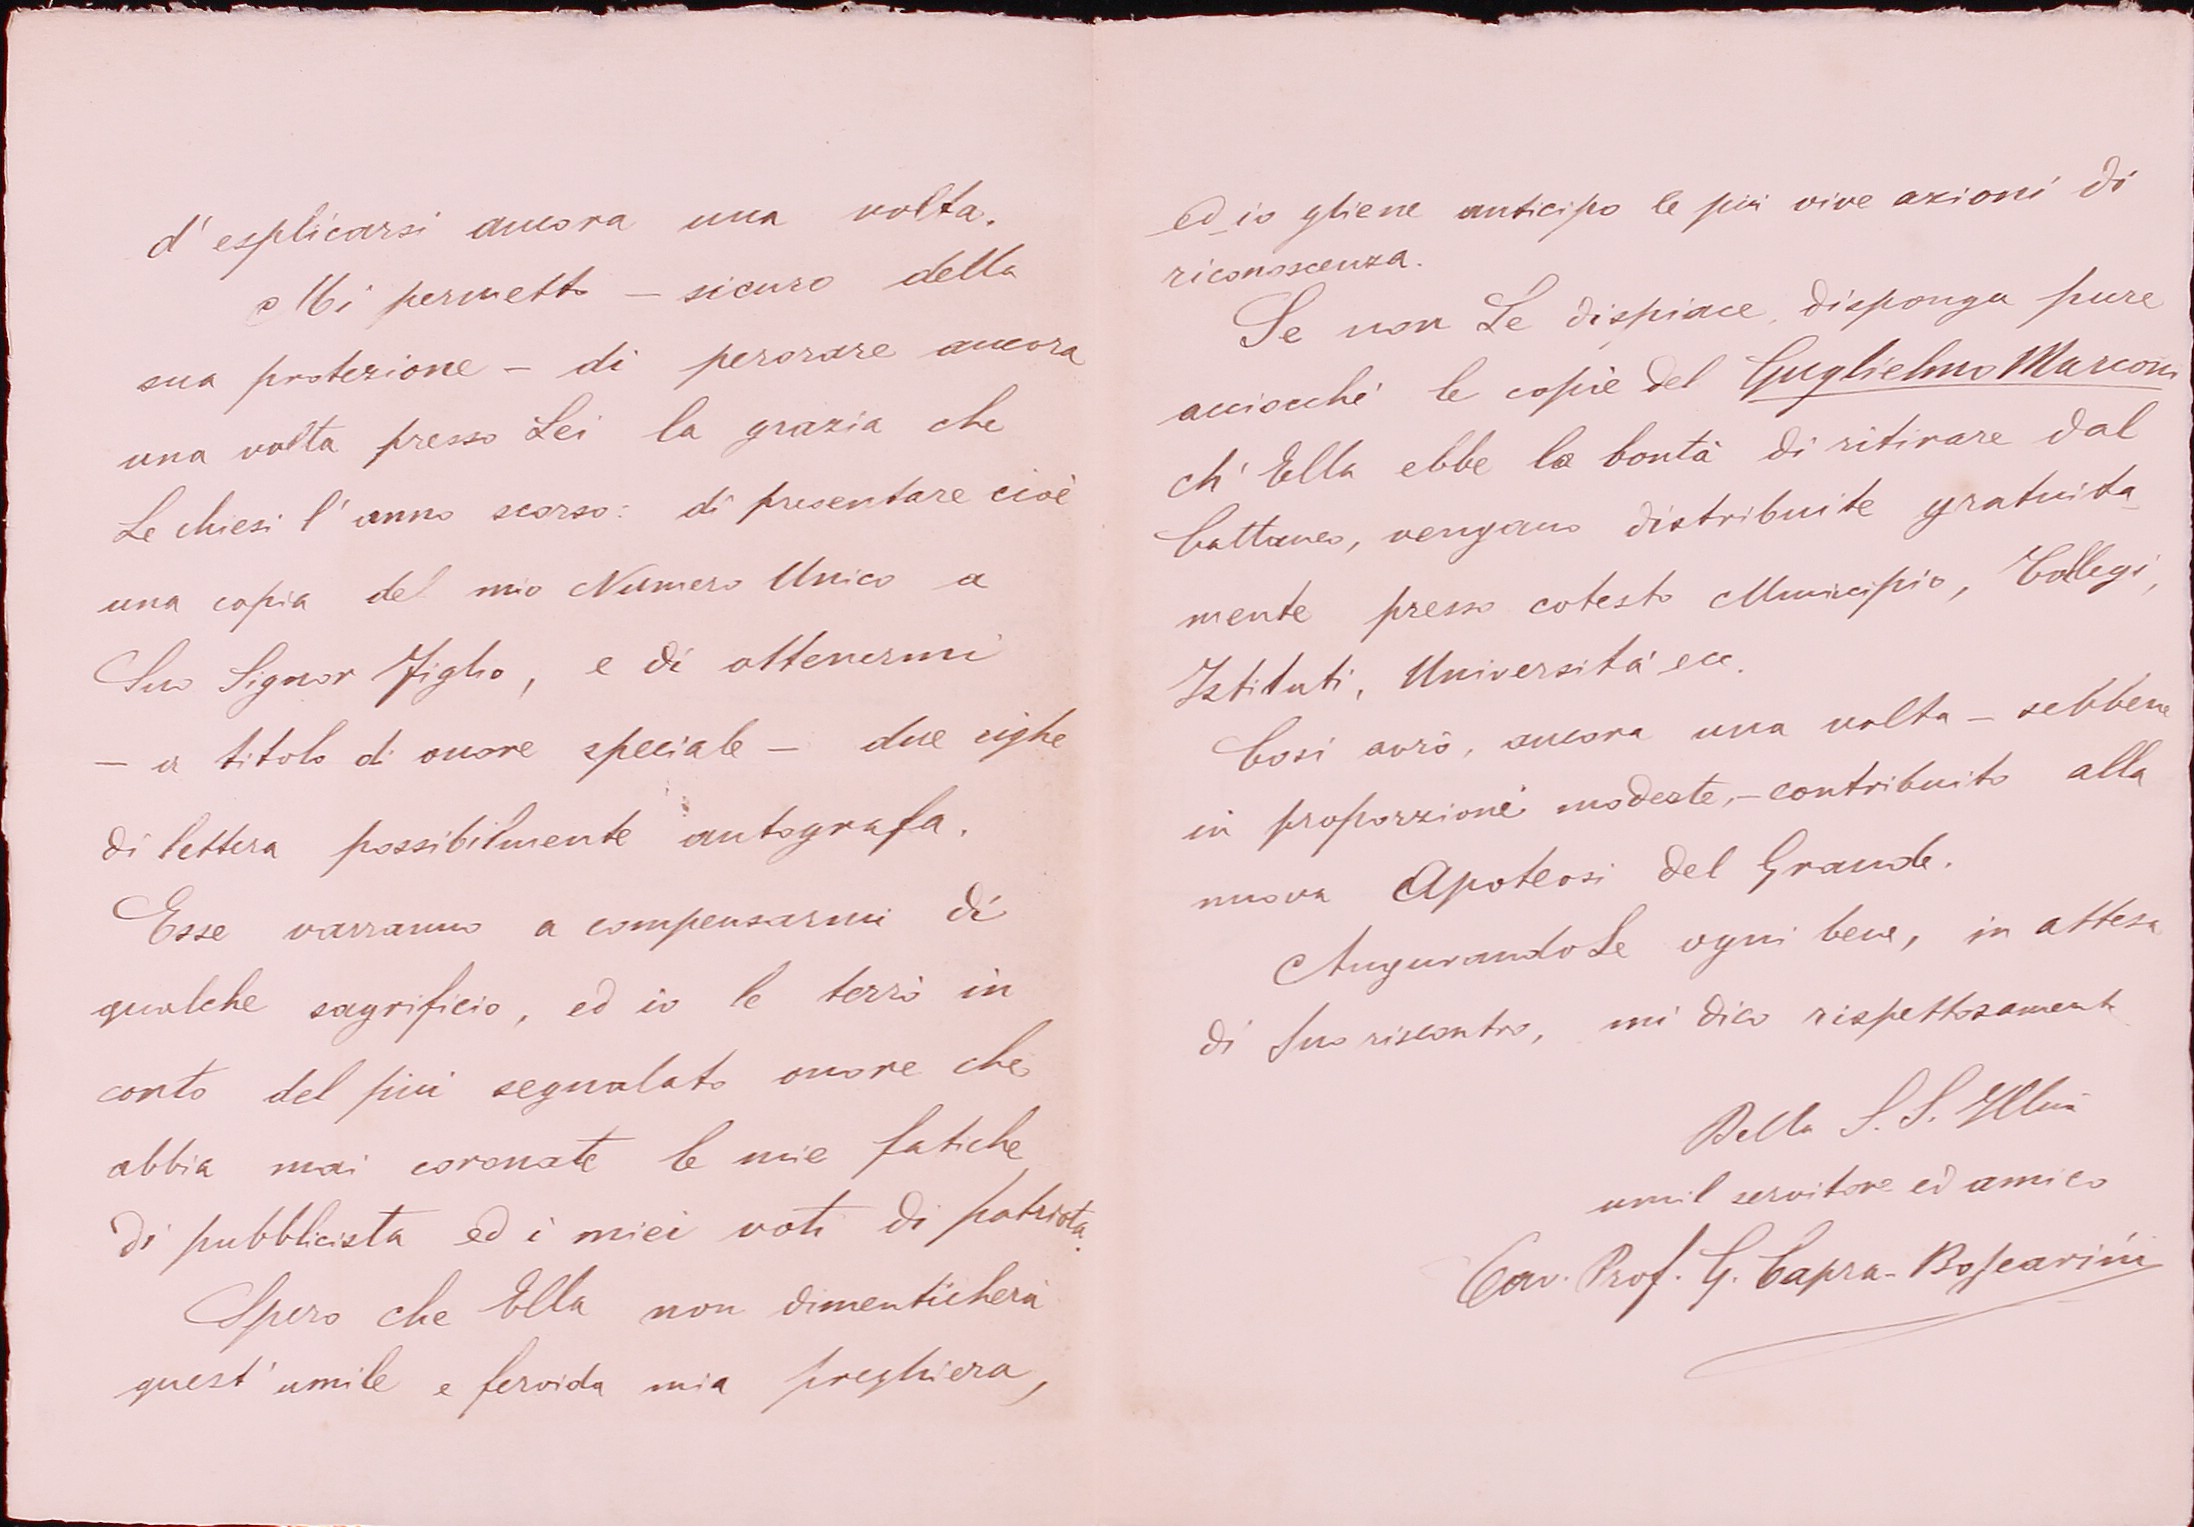 d'esplicarsi ancora una volta.
Mi permetto — sicuro della
sua protezione — di perorare ancora
una volta presso Lei la grazia che
Le chiesi l'anno scorso: di presentare cioè
una copia del mio Numero Unico a
Suo Signor Figlio, e di ottenermi
— a titolo di onore speciale — due righe
di lettera possibilmente autografa.
Esse varranno a compensarmi di
qualche sagrificio, ed io le terrò in
conto del più segnalato onore che
abbia mai coronate le mie fatiche
di pubblicista ed i miei voti di patriota.
Spero che Ella non dimenticherà
quest'umile e fervida mia preghiera,
ed io gliene anticipo le più vive azioni di
riconoscenza.
Se non Le dispiace, disponga pure
acciocchè le copie del Guglielmo Marconi
ch'Ella ebbe la bontà di ritirare dal
Cattaneo, vengano distribuite gratuita-
mente presso cotesto Municipio, Collegi,
Istituti, Università ecc.
Così avrò, ancora una volta — sebbene
in proporzione modeste, — contribuito alla
nuova Apoteosi del Grande.
AugurandoLe ogni bene, in attesa
di Suo riscontro, mi dico rispettosamente
Della S. S. Illma
umil servitore ed amico
Cav. Prof. G. Capra-Boscarini